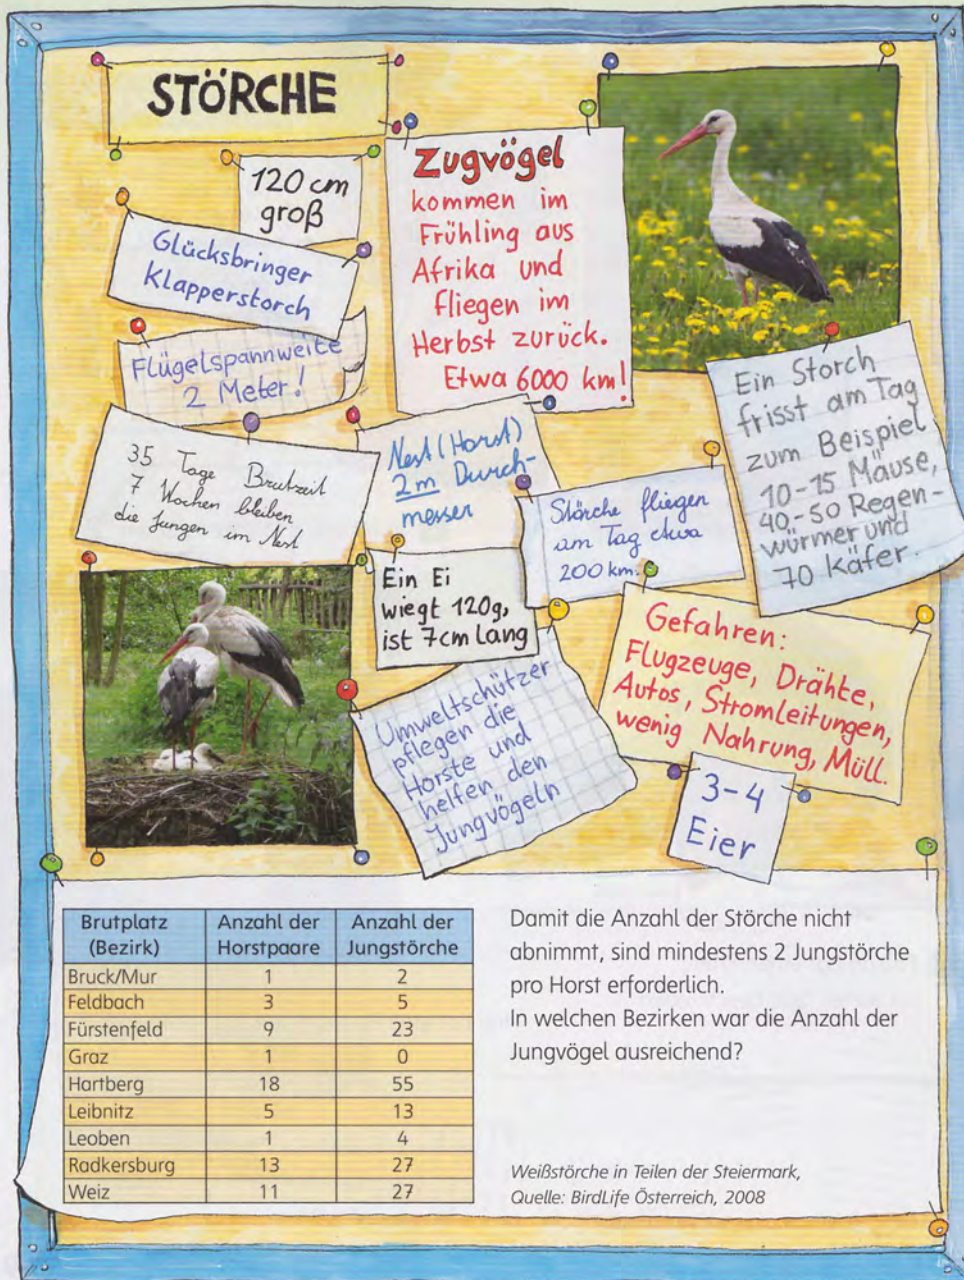 STÖRCHE
120 cm
groß
Glücksbringer
Klapperstorch
Flügelspannweite
2 Meter!
Zugvögel
kommen im
Frühling aus
Afrika und
fliegen im
Herbst zurück.
Etwa 6000 km!
35 Tage Brutzeit
7 Wochen bleiben
die Jungen im Nest
Nest (Horst)
2m Durch-
messer
Störche fliegen
am Tag etwa
200 km.
Ein Storch
frisst am Tag
zum Beispiel
10-15 Mäuse,
40-50 Regen-
würmer und
70 Käfer.
Ein Ei
wiegt 120g,
ist 7cm lang
Gefahren:
Flugzeuge, Drähte,
Autos, Stromleitungen,
wenig Nahrung, Müll.
Umweltschützer
pflegen die
Horste und
helfen den
Jungvögeln
3-4
Eier
Brutplatz (Bezirk) Anzahl der Horstpaare Anzahl der Jungstörche
Bruck/Mur 1 2
Feldbach 3 5
Fürstenfeld 9 23
Graz 1 0
Hartberg 18 55
Leibnitz 5 13
Leoben 1 4
Radkersburg 13 27
Weiz 11 27
Damit die Anzahl der Störche nicht
abnimmt, sind mindestens 2 Jungstörche
pro Horst erforderlich.
In welchen Bezirken war die Anzahl der
Jungvögel ausreichend?
Weißstörche in Teilen der Steiermark,
Quelle: BirdLife Österreich, 2008